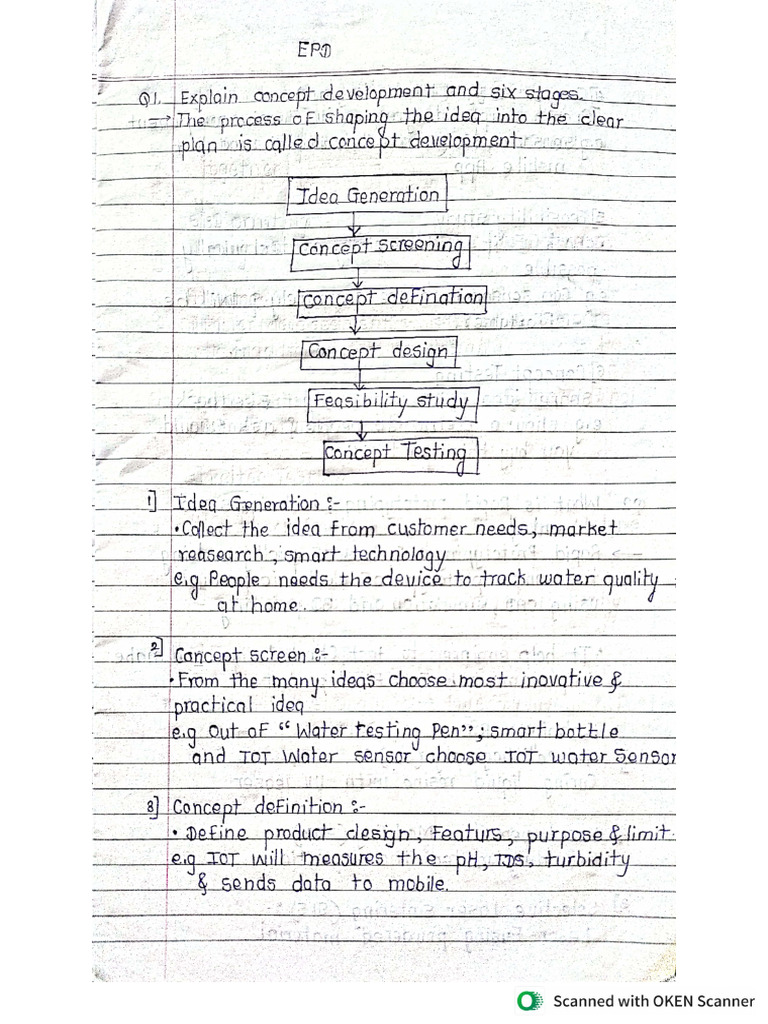 EPD
Q1. Explain concept development and six stages.
→ The process of shaping the idea into the clear
plan is called concept development.
Idea Generation
Concept screening
Concept defination
Concept design
Feasibility study
Concept Testing
1] Idea Generation :-
• Collect the idea from customer needs, market
reasearch, smart technology
e.g People needs the device to track water quality
at home.
2] Concept screen :-
• From the many ideas choose most inovative &
practical idea
e.g out of “Water testing Pen”, smart bottle
and IOT Water sensor choose IOT water Sensor
3] Concept definition :-
• Define product design, Featurs, purpose & limit.
e.g IOT will measures the pH, TDS, turbidity
& sends data to mobile.
Scanned with OKEN Scanner